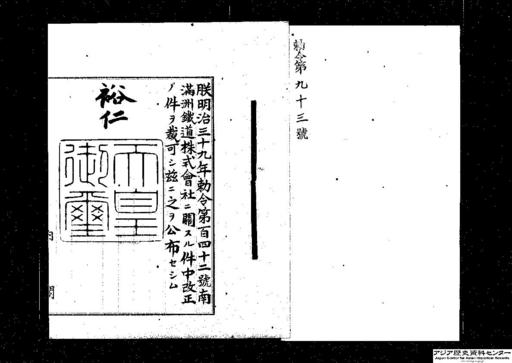 勅令第九十三號
朕明治三十九年勅令第百四十二號南
滿洲鐵道株式會社ニ關スル件中改正
ノ件ヲ裁可シ茲ニ之ヲ公布セシム
裕仁
天皇
御璽
内閣
アジア歴史資料センター
Japan Center for Asian Historical Records